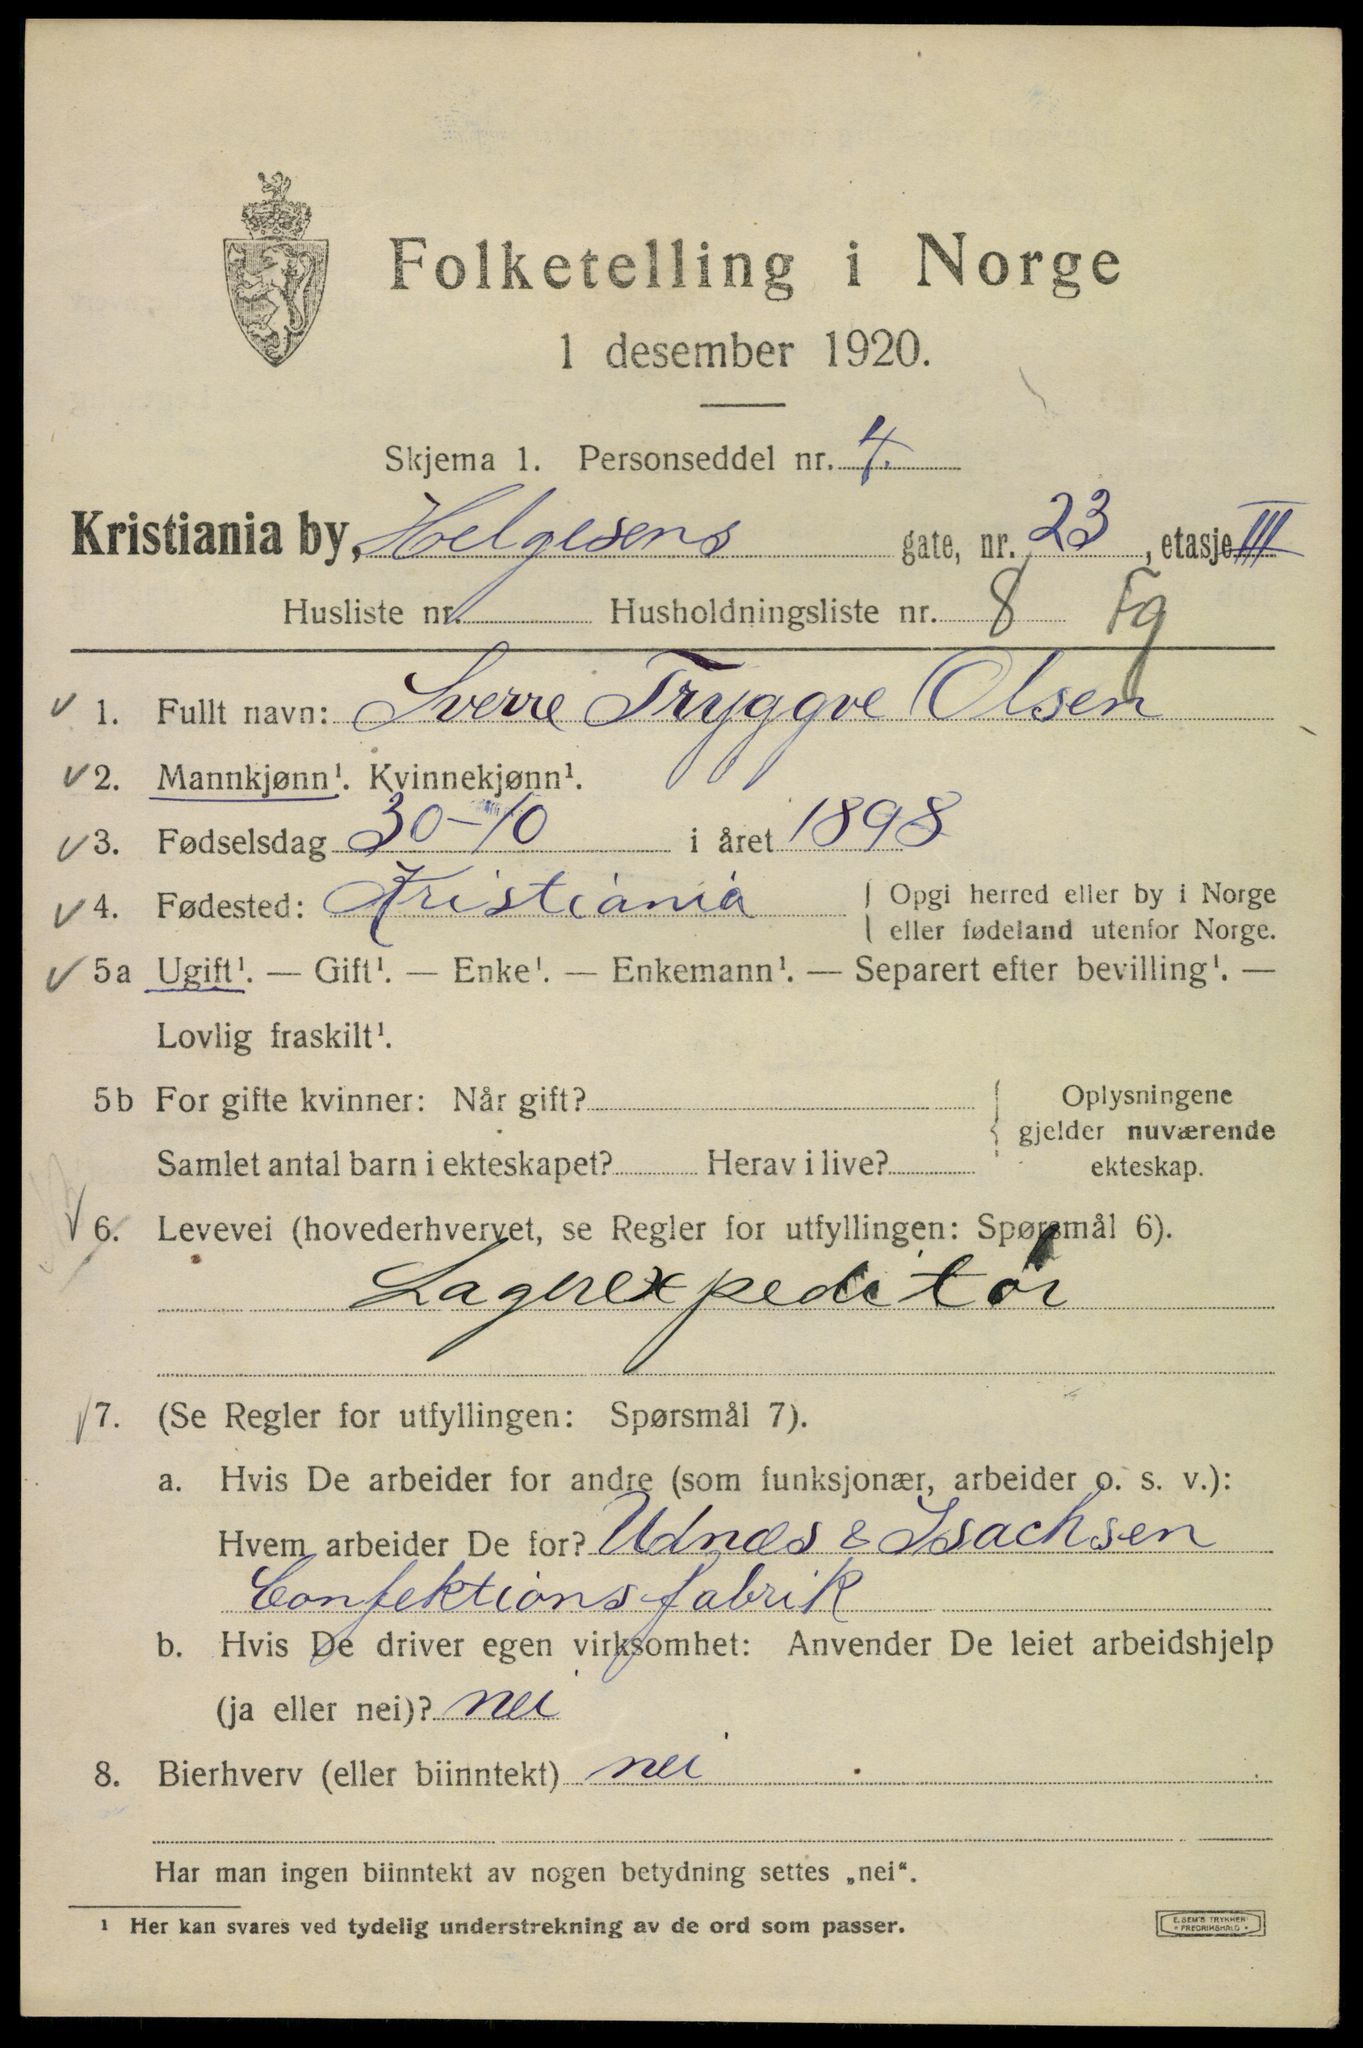 Folketelling i Norge
1 desember 1920.
Skjema 1. Personseddel nr. 4.
Kristiania by, Helgesens gate, nr. 23, etasje III
Husliste nr. Husholdningsliste nr. 8 Fg
1. Fullt navn: Sverre Tryggve Olsen
2. Mannkjønn¹. Kvinnekjønn¹.
3. Fødselsdag 30-10 i året 1898
4. Fødested: Kristiania { Opgi herred eller by i Norge
eller fødeland utenfor Norge.
5a Ugift¹. — Gift¹. — Enke¹. — Enkemann¹. — Separert efter bevilling¹. —
Lovlig fraskilt¹.
5b For gifte kvinner: Når gift? { Oplysningene
gjelder nuværende
Samlet antal barn i ekteskapet? Herav i live? ekteskap.
6. Levevei (hovederhvervet, se Regler for utfyllingen: Spørsmål 6).
Lagerexpeditør
7. (Se Regler for utfyllingen: Spørsmål 7).
a. Hvis De arbeider for andre (som funksjonær, arbeider o. s. v.):
Hvem arbeider De for? Udnæs & Isachsen
Confektionsfabrik
b. Hvis De driver egen virksomhet: Anvender De leiet arbeidshjelp
(ja eller nei)? nei
8. Bierhverv (eller biinntekt) nei
Har man ingen biinntekt av nogen betydning settes „nei“.
¹ Her kan svares ved tydelig understrekning av de ord som passer.
E. SEM'S TRYKKERI
FREDRIKSHALD